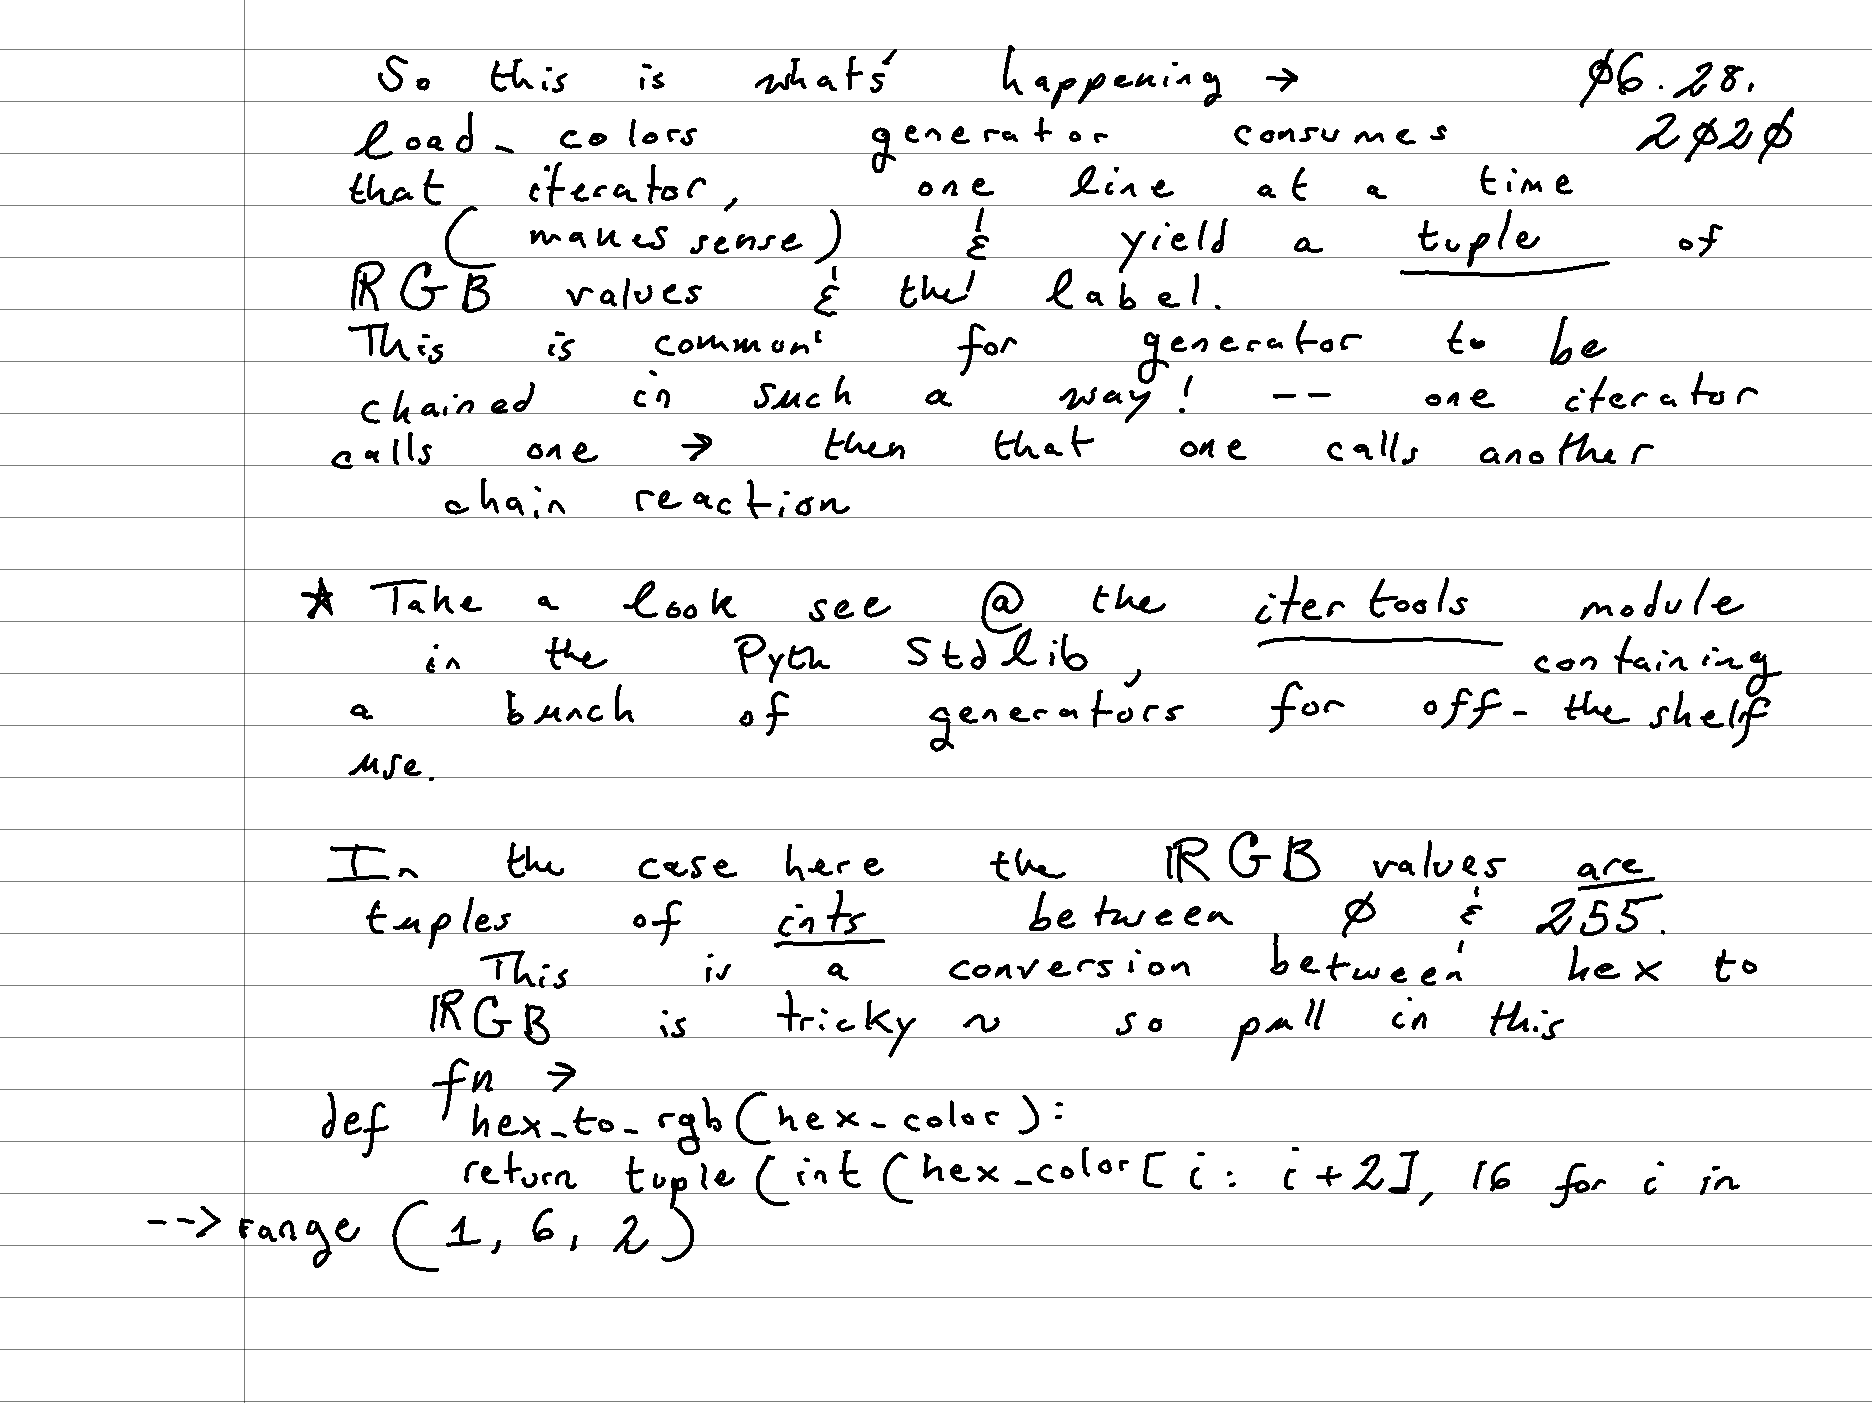 So this is what's happening → 06.28.
load_colors generator consumes 2020
that iterator, one line at a time
(makes sense) & yield a tuple of
RGB values & the label.
This is common for generator to be
chained in such a way! -- one iterator
calls one → then that one calls another
chain reaction
★ Take a look see @ the itertools module
in the Pyth Stdlib, containing
a bunch of generators for off-the shelf
use.
In the case here the RGB values are
tuples of ints between 0 & 255.
This is a conversion between hex to
RGB is tricky ~ so pull in this
fn →
def hex_to_rgb(hex_color):
return tuple(int(hex_color[i: i+2], 16 for i in
--> range (1, 6, 2)